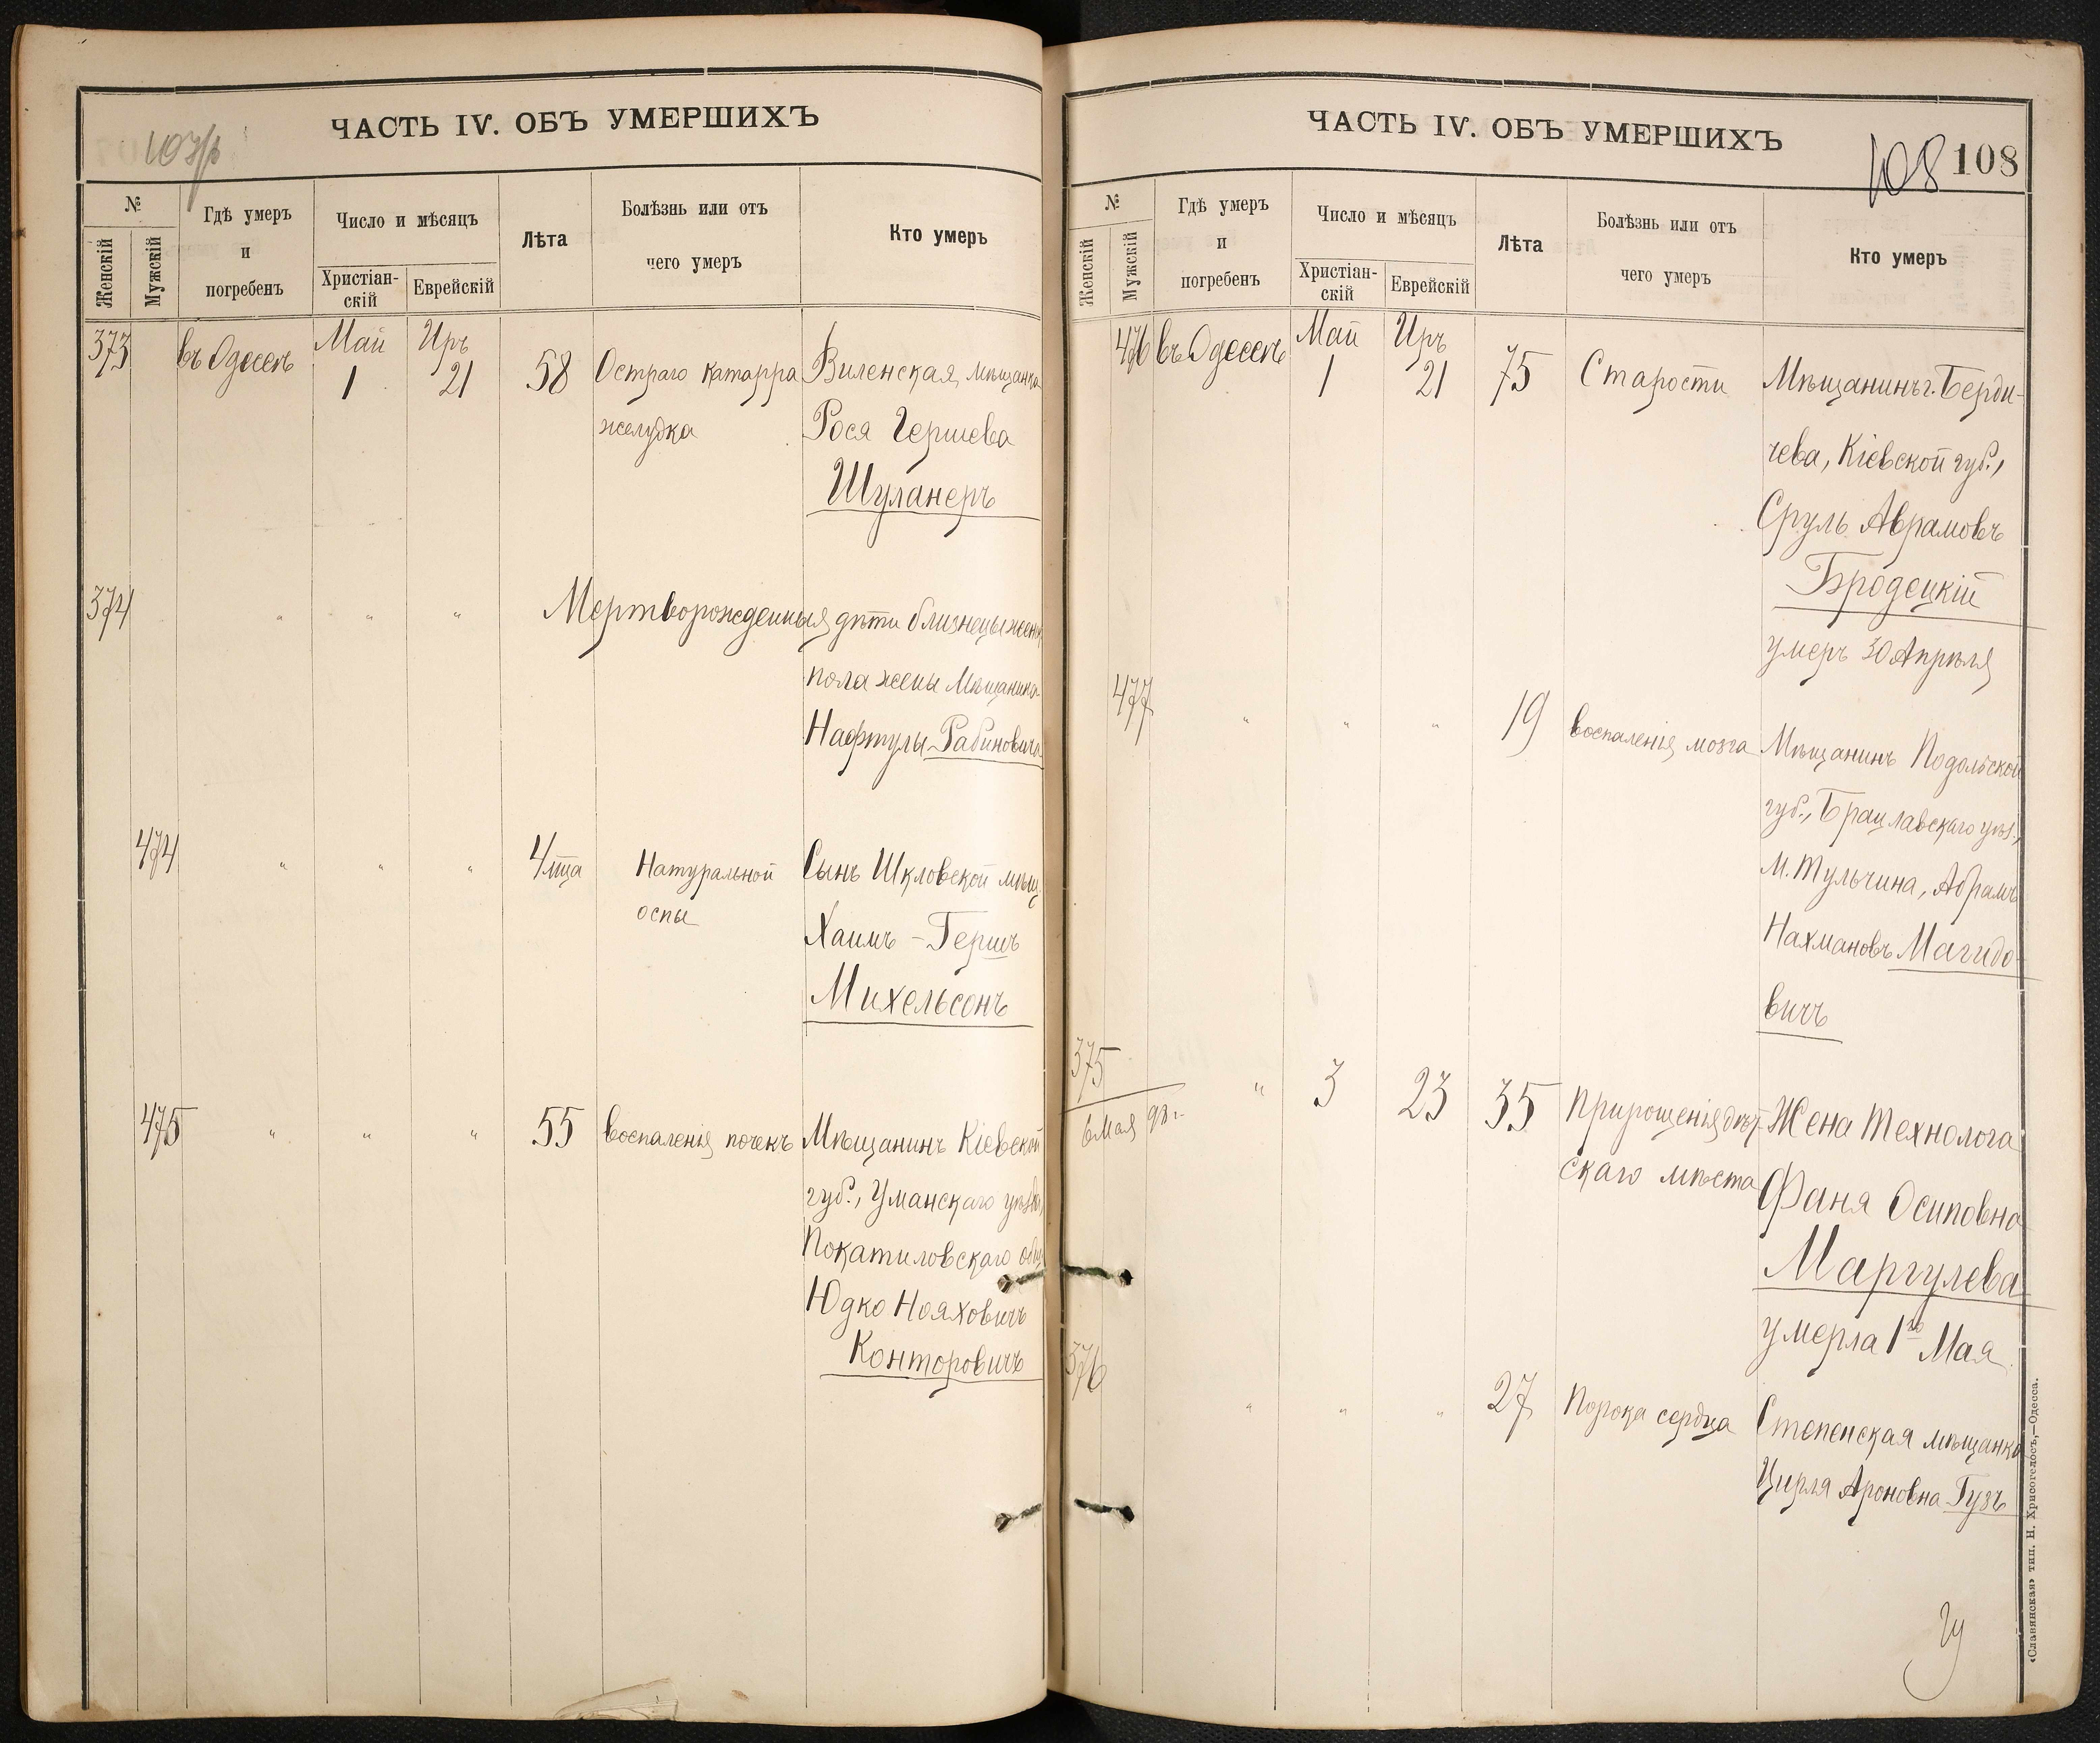 ЧАСТЬ IV. ОБЪ УМЕРШИХЪ
№
Женскій
Мужскій
Гдѣ умеръ
и
погребенъ
Число и мѣсяцъ
Христіан-
скій
Еврейскій
Лѣта
Болѣзнь или отъ
чего умеръ
Кто умеръ
373
въ Одессѣ
Май
1
Иръ
21
58
Остраго катарра
желудка
Виленская мѣщанка
Рося Гершева
Шуланеръ
374
" " "
Мертворожденныя дѣти близнецы женск
пола жены Мѣщанина
Нафтулы Рабиновича
474
" " "
4 мца
Натуральной
оспы
Сынъ Шкловской мѣщ.
Хаимъ - Гершъ
Михельсонъ
475
" " "
55
воспаленія почекъ
Мѣщанинъ Кіевской
губ., Уманскаго уѣзда,
Покатиловскаго общ
Юдко Нояховичъ
Конторовичъ
ЧАСТЬ IV. ОБЪ УМЕРШИХЪ
108 108
№
Женскій
Мужскій
Гдѣ умеръ
и
погребенъ
Число и мѣсяцъ
Христіан-
скій
Еврейскій
Лѣта
Болѣзнь или отъ
чего умеръ
Кто умеръ
476
въ Одессѣ
Май
1
Иръ
21
75
Старости
Мѣщанинъ г. Берди-
чева, Кіевской губ.,
Сруль Аврамовъ
Бродецкій
умеръ 30 Апрѣля
477
" " "
19
воспаленія мозга
Мѣщанинъ Подольской
губ., Брацлавскаго уѣз.,
м. Тульчина, Абрамъ
Нахмановъ Магидо-
вичъ
375
6 мая 98 г.
"
3
23
35
Прирощенія дѣт-
скаго мѣста
Жена Технолога
Фаня Осиповна
Маргулева
умерла 1го Мая
376
" " "
27
Порока сердца
Степенская мѣщанка
Цирля Ароновна Гузъ
«Славянская» тип. Н. Хрисогелосъ,—Одесса.